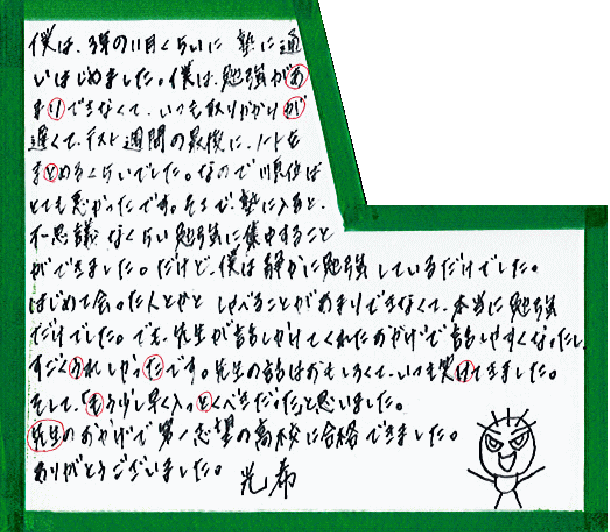 僕は、3年の11月くらいに 塾に通
いはじめました。僕は、勉強があ
まりできなくて、いつも取りかかりが
遅くて、テスト週間の最後に、ノートを
まとめるくらいでした。なので順位は
とても悪かったです。そこで、塾に入ると、
不思議なくらい勉強に集中すること
ができました。だけど、僕は静かに勉強しているだけでした。
はじめて会った人とかと しゃべることがあまりできなくて、本当に勉強
だけでした。でも、先生が話しかけてくれたおかげで話しやすくなったし、
すごくうれしかったです。先生の話はおもしろくて、いつも笑けてきました。
そして、「もう少し早く入っとくべきだった」と思いました。
先生のおかげで第一志望の高校に合格できました。
ありがとうございました。 光希